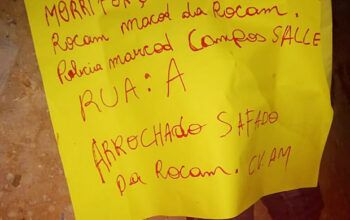 MORRI POR
Rocam macos da Rocam.
Policia marcod Campos SALLE
RUA: A
ARROCHADO SAFADO
Da Rocam. CKAM